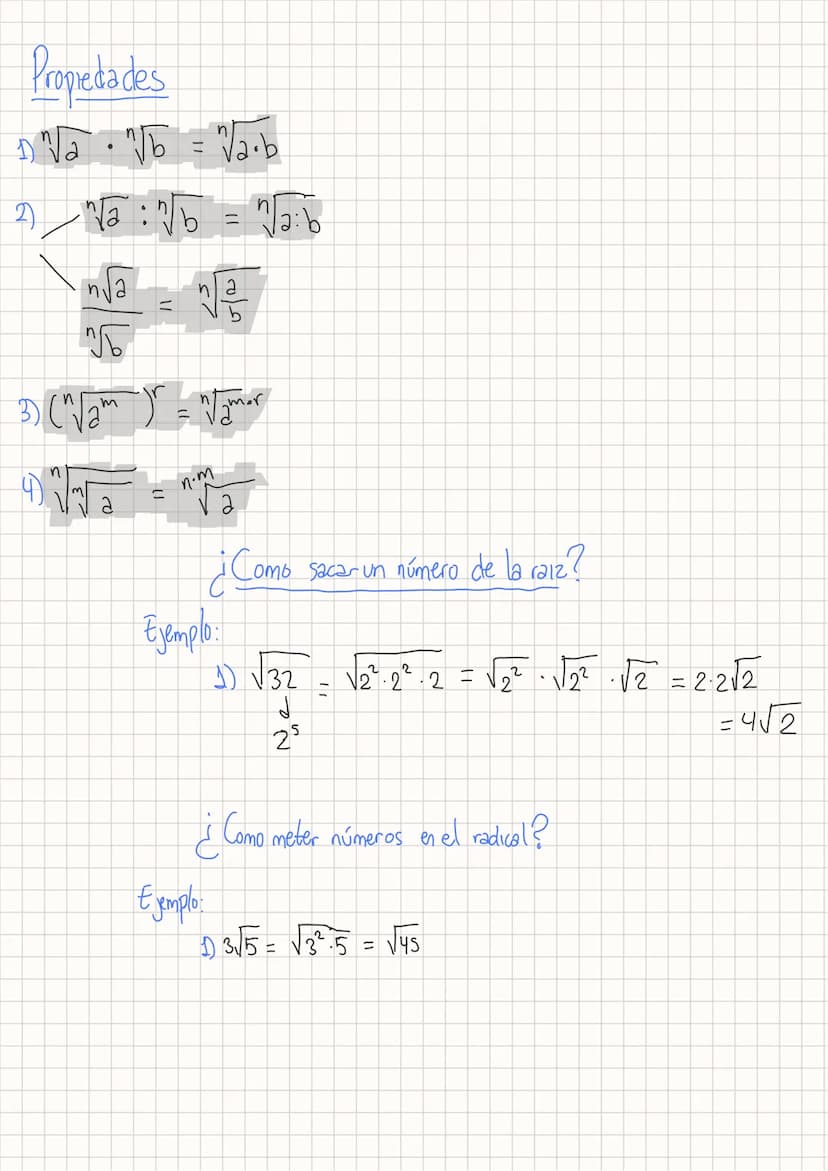 Propiedades
1) ⁿ√a · ⁿ√b = ⁿ√a·b
2) ⁿ√a : ⁿ√b = ⁿ√a:b
ⁿ√a / ⁿ√b = ⁿ√(a/b)
3) (ⁿ√aᵐ)ʳ = ⁿ√aᵐ·ʳ
4) ⁿ√ᵐ√a = ⁿ·ᵐ√a
¿Como sacar un número de la raiz?
Ejemplo:
1) √32 = √2²·2²·2 = √2² · √2² · √2 = 2·2√2
↓
2⁵
= 4√2
¿Como meter números en el radical?
Ejemplo:
1) 3√5 = √3²·5 = √45